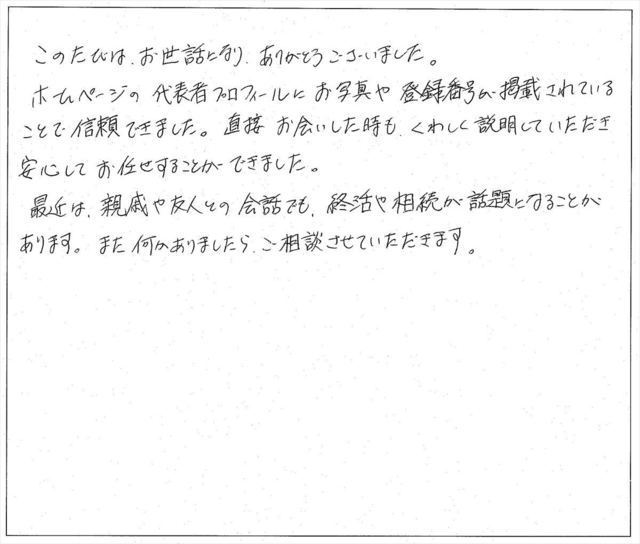 このたびは、お世話になり、ありがとうございました。
ホームページの代表者プロフィールにお写真や登録番号が掲載されている
ことで信頼できました。直接お会いした時も、くわしく説明していただき
安心してお任せすることができました。
最近は、親戚や友人との会話でも、終活や相続が話題になることが
あります。また何かありましたら、ご相談させていただきます。